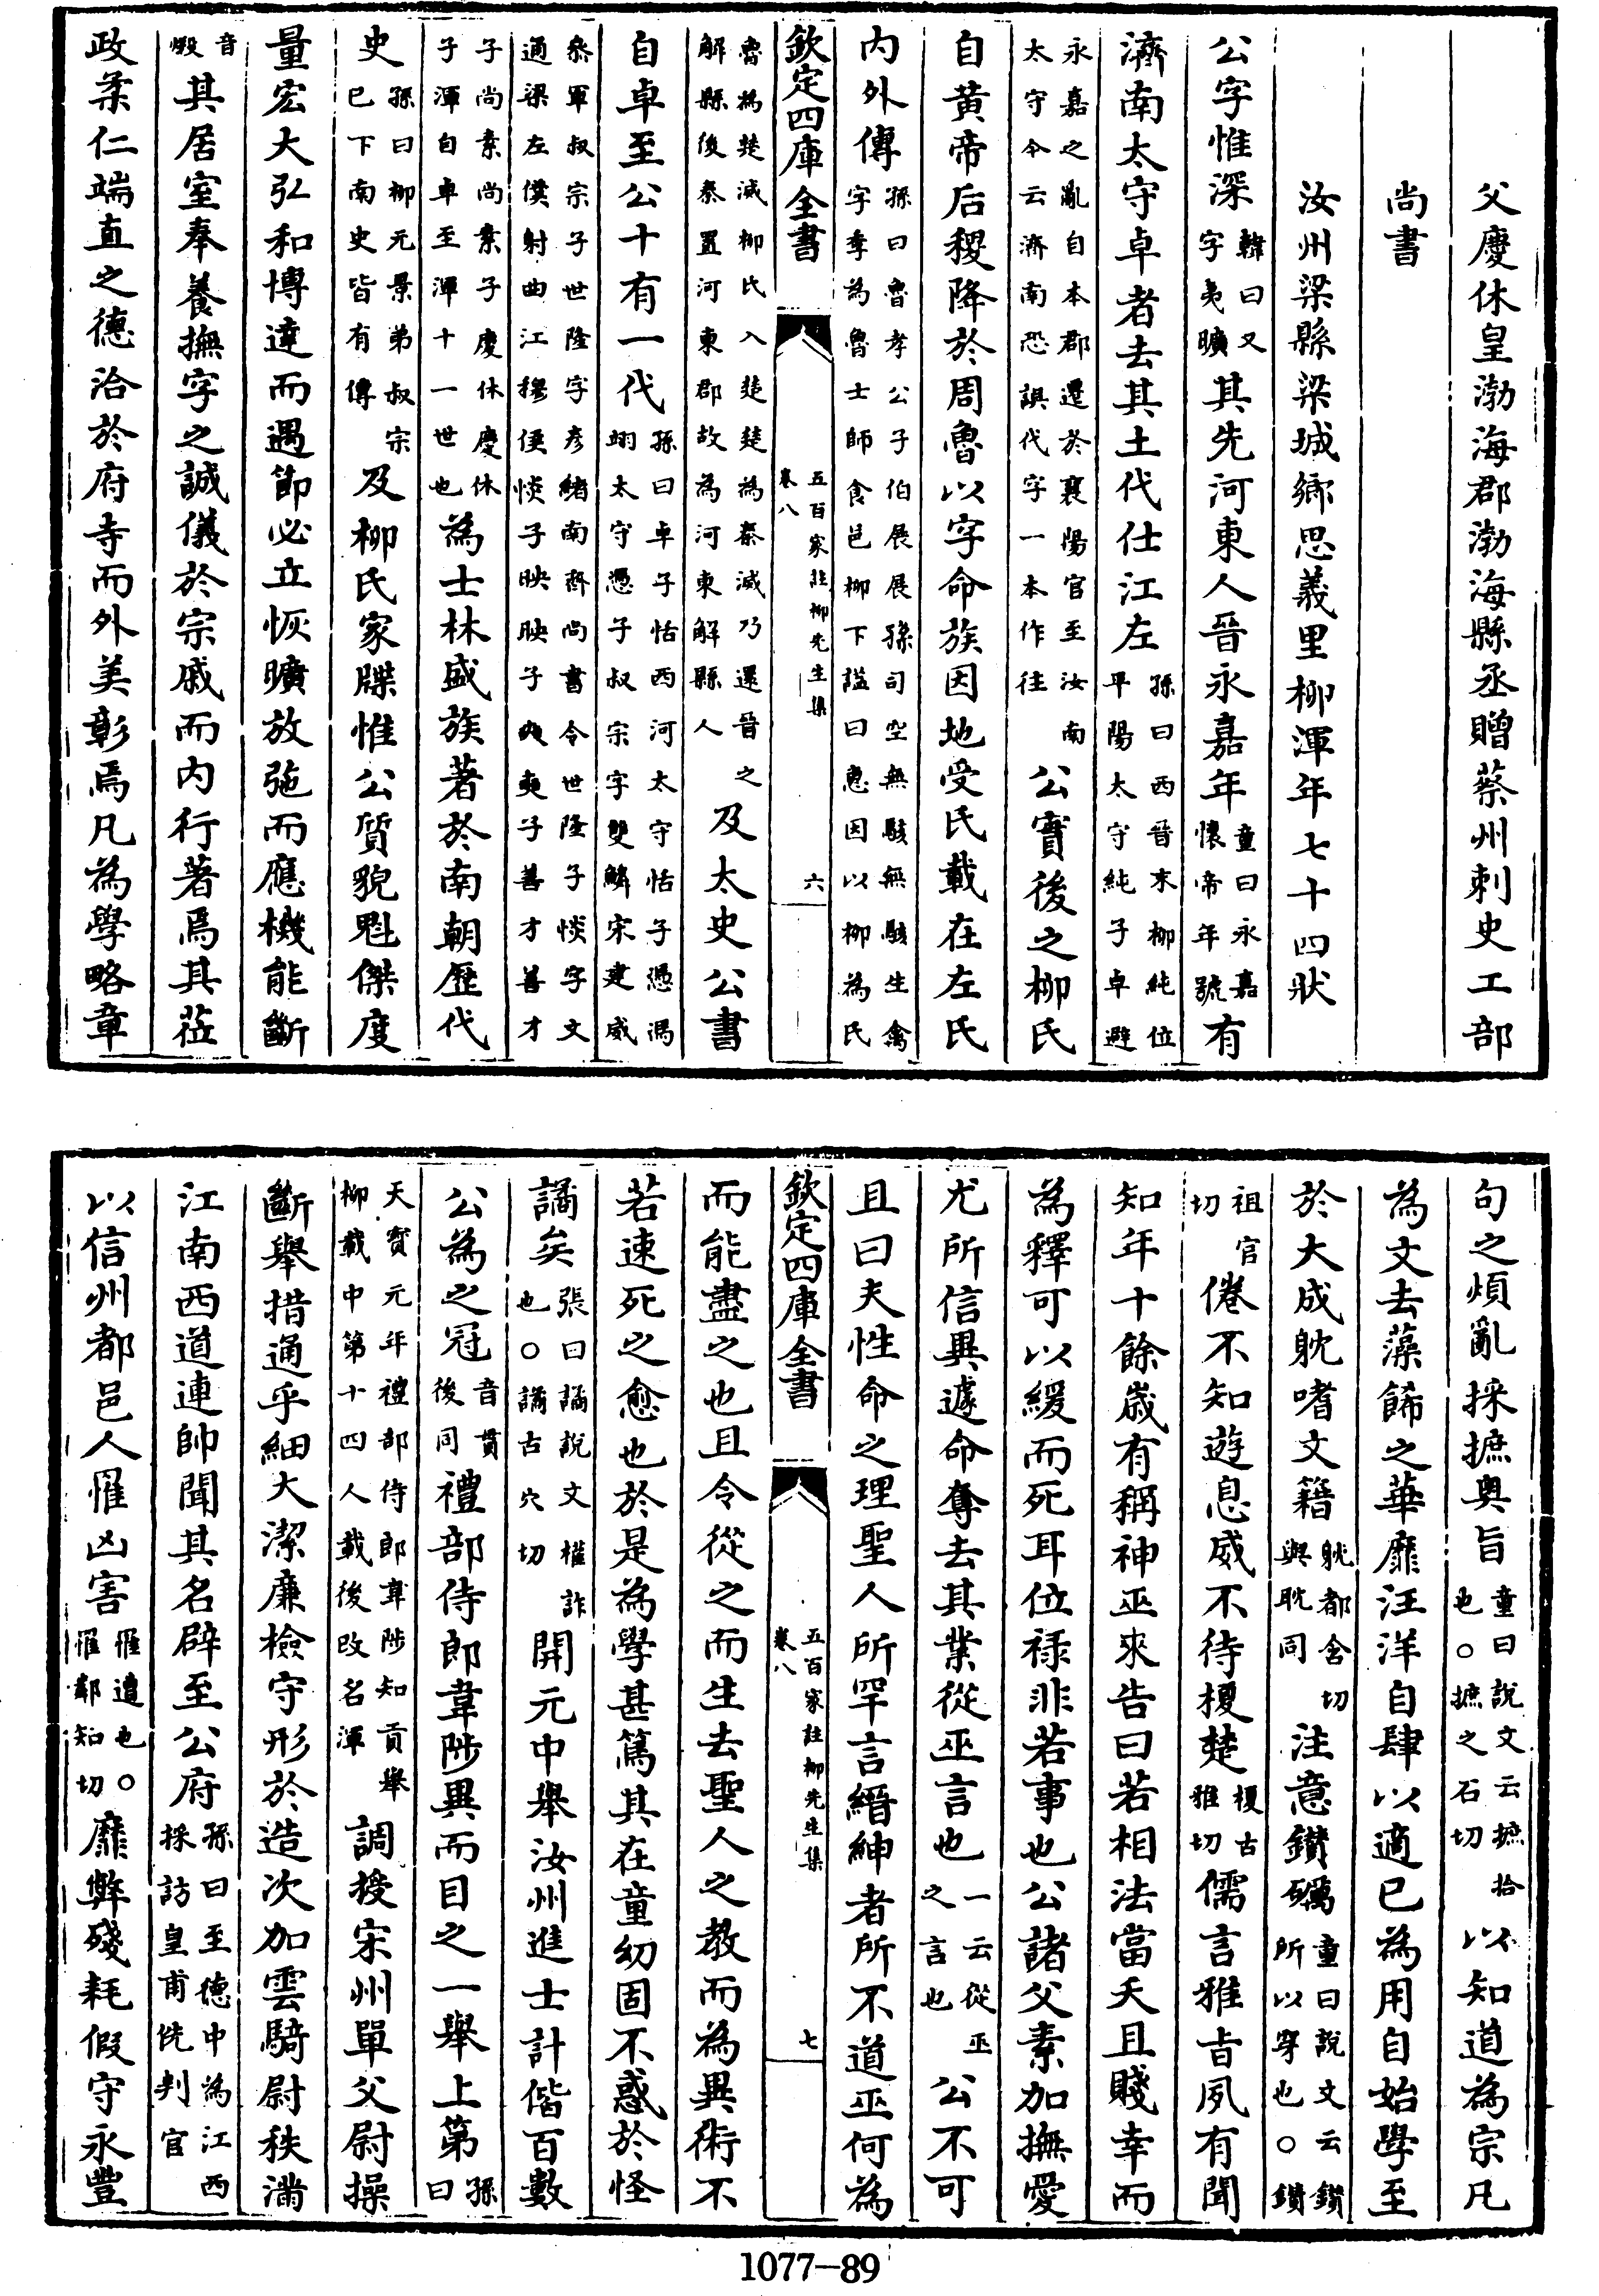 父慶休皇渤海郡渤海縣丞贈蔡州刺史工部
尚書
汝州梁縣梁城鄉思義里柳渾年七十四狀
公字惟深韓曰又字夷曠其先河東人晉永嘉年童曰永嘉懷帝年號有
濟南太守卓者去其土代仕江左孫曰西晉末柳純位平陽太守純子卓避
永嘉之亂自本郡遷於襄陽官至汝南太守今云濟南恐誤代字一本作往公實後之柳氏
自黃帝后稷降於周魯以字命族因地受氏載在左氏
內外傳孫曰魯孝公子伯展展孫司空無駭無駭生禽字季為魯士師食邑柳下諡曰惠因以柳為氏
欽定四庫全書 五百家註柳先生集 卷八 六
魯為楚滅柳氏入楚楚為秦滅乃還晉之解縣後秦置河東郡故為河東解縣人及太史公書
自卓至公十有一代孫曰卓子恬西河太守恬子憑馮翊太守憑子叔宗字雙鱗宋建威
叅軍叔宗子世隆字彥緒南齊尚書令世隆子惔字文通梁左僕射曲江穆侯惔子映映子奭奭子善才善才
子尚素尚素子慶休慶休子渾自卓至渾十一世也為士林盛族著於南朝歷代
史孫曰柳元景弟叔宗已下南史皆有傳及柳氏家牒惟公質貌魁傑度
量宏大弘和博達而遇節必立恢曠放弛而應機能斷
音煅其居室奉養撫字之誠儀於宗戚而內行著焉其莅
政柔仁端直之德洽於府寺而外美彰焉凡為學略章
句之煩亂採摭奥旨童曰說文云摭拾也○摭之石切以知道為宗凡
為文去藻飾之華靡汪洋自肆以適已為用自始學至
於大成躭嗜文籍躭都含切與耽同注意鑽礪童曰說文云鑽所以穿也○鑽
祖官切倦不知遊息威不待榎楚榎古雅切儒言雅旨夙有聞
知年十餘嵗有稱神巫來告曰若相法當夭且賤幸而
為釋可以緩而死耳位祿非若事也公諸父素加撫愛
尤所信異遽命奪去其業從巫言也一云從巫之言也公不可
且曰夫性命之理聖人所罕言縉紳者所不道巫何為
欽定四庫全書 五百家註柳先生集 卷八 七
而能盡之也且令從之而生去聖人之教而為異術不
若速死之愈也於是為學甚篤其在童幼固不惑於怪
譎矣張曰譎說文權詐也○譎古穴切開元中舉汝州進士計偕百數
公為之冠音貫後同禮部侍郎韋陟異而目之一舉上第孫曰
天寳元年禮部侍郎韋陟知貢舉柳載中第十四人載後改名渾調授宋州單父尉操
斷舉措通乎細大潔廉檢守形於造次加雲騎尉秩滿
江南西道連帥聞其名辟至公府孫曰至德中為江西採訪皇甫侁判官
以信州都邑人罹凶害罹遭也○罹鄰知切靡弊殘耗假守永豐
1077—89